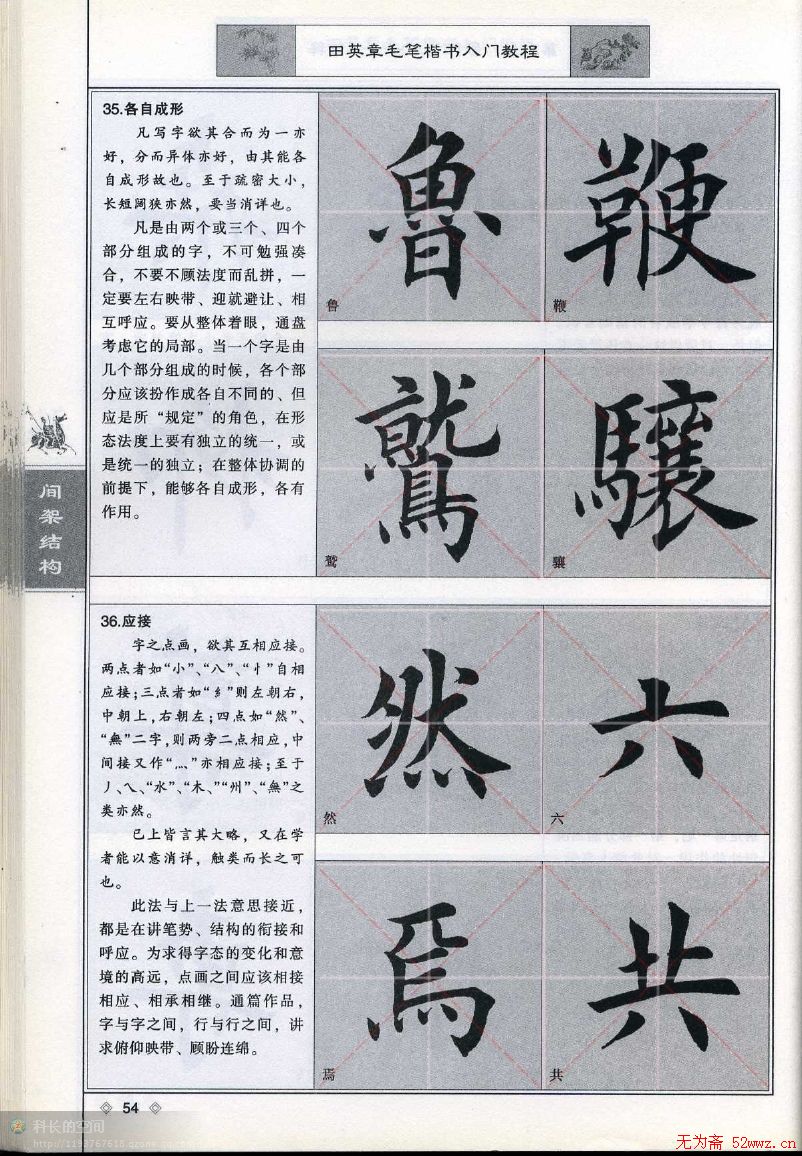 田英章毛笔楷书入门教程
35.各自成形
凡写字欲其合而为一亦
好，分而异体亦好，由其能各
自成形故也。至于疏密大小，
长短阔狭亦然，要当消详也。
凡是由两个或三个、四个
部分组成的字，不可勉强凑
合，不要不顾法度而乱拼，一
定要左右映带、迎就避让、相
互呼应。要从整体着眼，通盘
考虑它的局部。当一个字是由
几个部分组成的时候，各个部
分应该扮作成各自不同的、但
应是所“规定”的角色，在形
态法度上要有独立的统一，或
是统一的独立；在整体协调的
前提下，能够各自成形，各有
作用。
魯 鞭
鲁 鞭
鷲 驤
鹫 驤
间架结构
36.应接
字之点画，欲其互相应接。
两点者如“小”、“八”、“忄”自相
应接；三点者如“纟”则左朝右，
中朝上，右朝左；四点如“然”、
“無”二字，则两旁二点相应，中
间接又作“灬”亦相应接；至于
丿、乀、“水”、“木、”“州”、“無”之
类亦然。
已上皆言其大略，又在学
者能以意消详，触类而长之可
也。
此法与上一法意思接近，
都是在讲笔势、结构的衔接和
呼应。为求得字态的变化和意
境的高远，点画之间应该相接
相应、相承相继。通篇作品，
字与字之间，行与行之间，讲
求俯仰映带、顾盼连绵。
然 六
然 六
焉 共
焉 共
54
科长的空间
http://1193767618.qzone.qq.com
无为斋 52wwz.cn